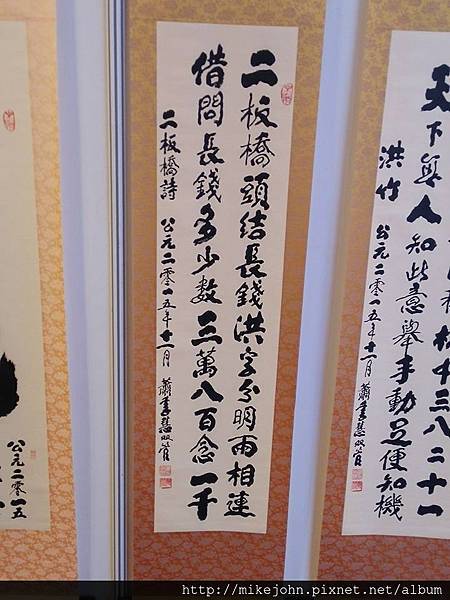 天
十三八二十一
天下與人知此意舉手動足便知機
洪竹 公元二零一五年十一月 蕭李慧
二板橋頭結長錢洪字分明兩相連
借問長錢多少數三萬八百念一千
二板橋詩 公元二零一五年十一月 蕭李慧
公元二零一五
http://mikejohn.pixnet.net/album